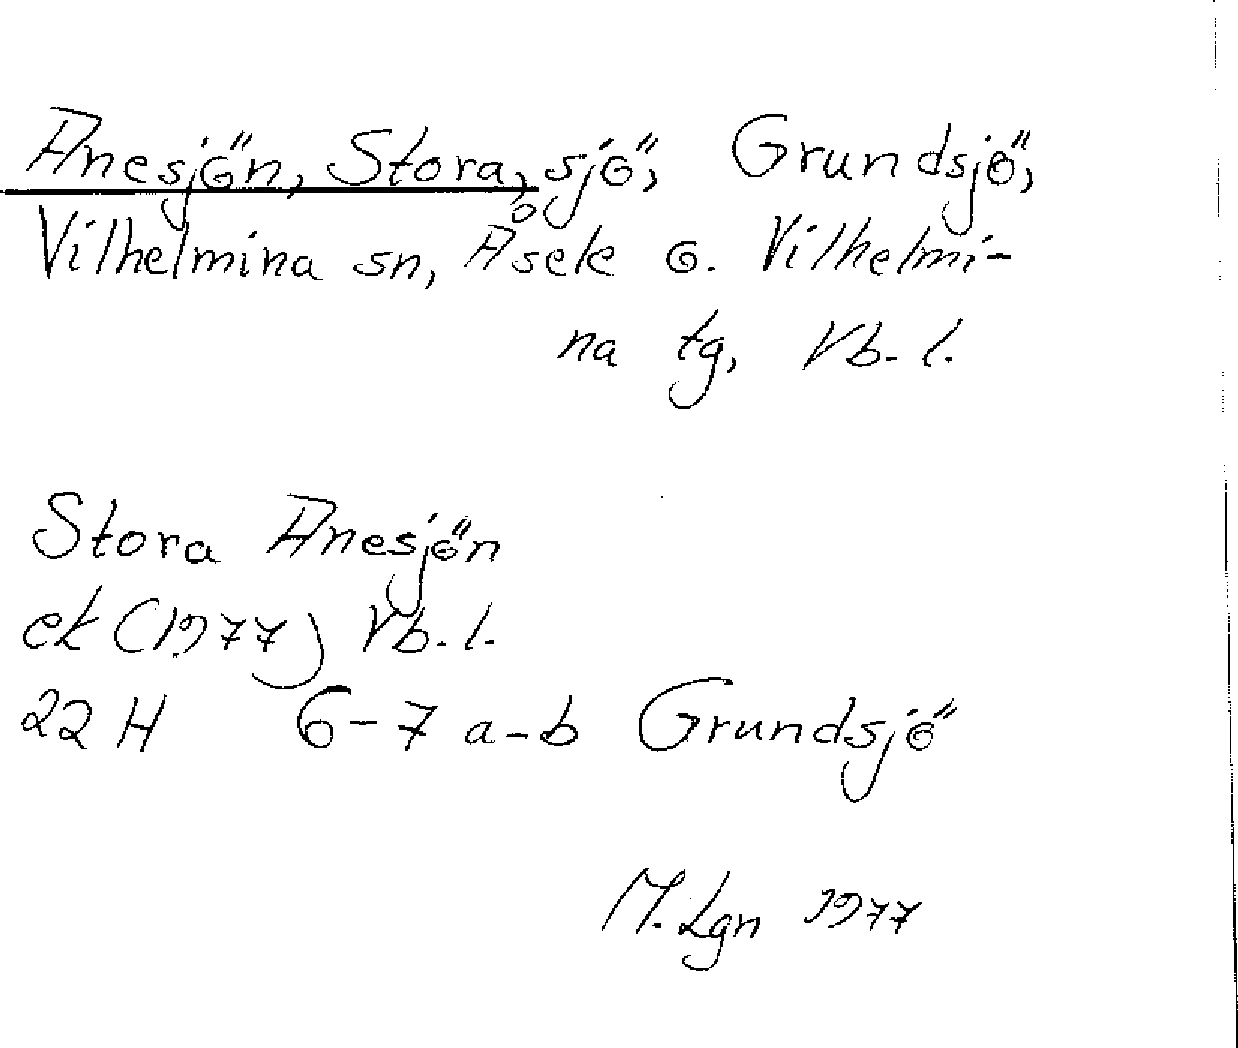 Anesjön, Stora, sjö, Grundsjö,
Vilhelmina sn, Åsele o. Vilhelmi-
na tg, Vb. l.
Stora Anesjön
ek (1977) Vb. l.
22 H 6-7 a-b Grundsjö
M. Lgn 1977